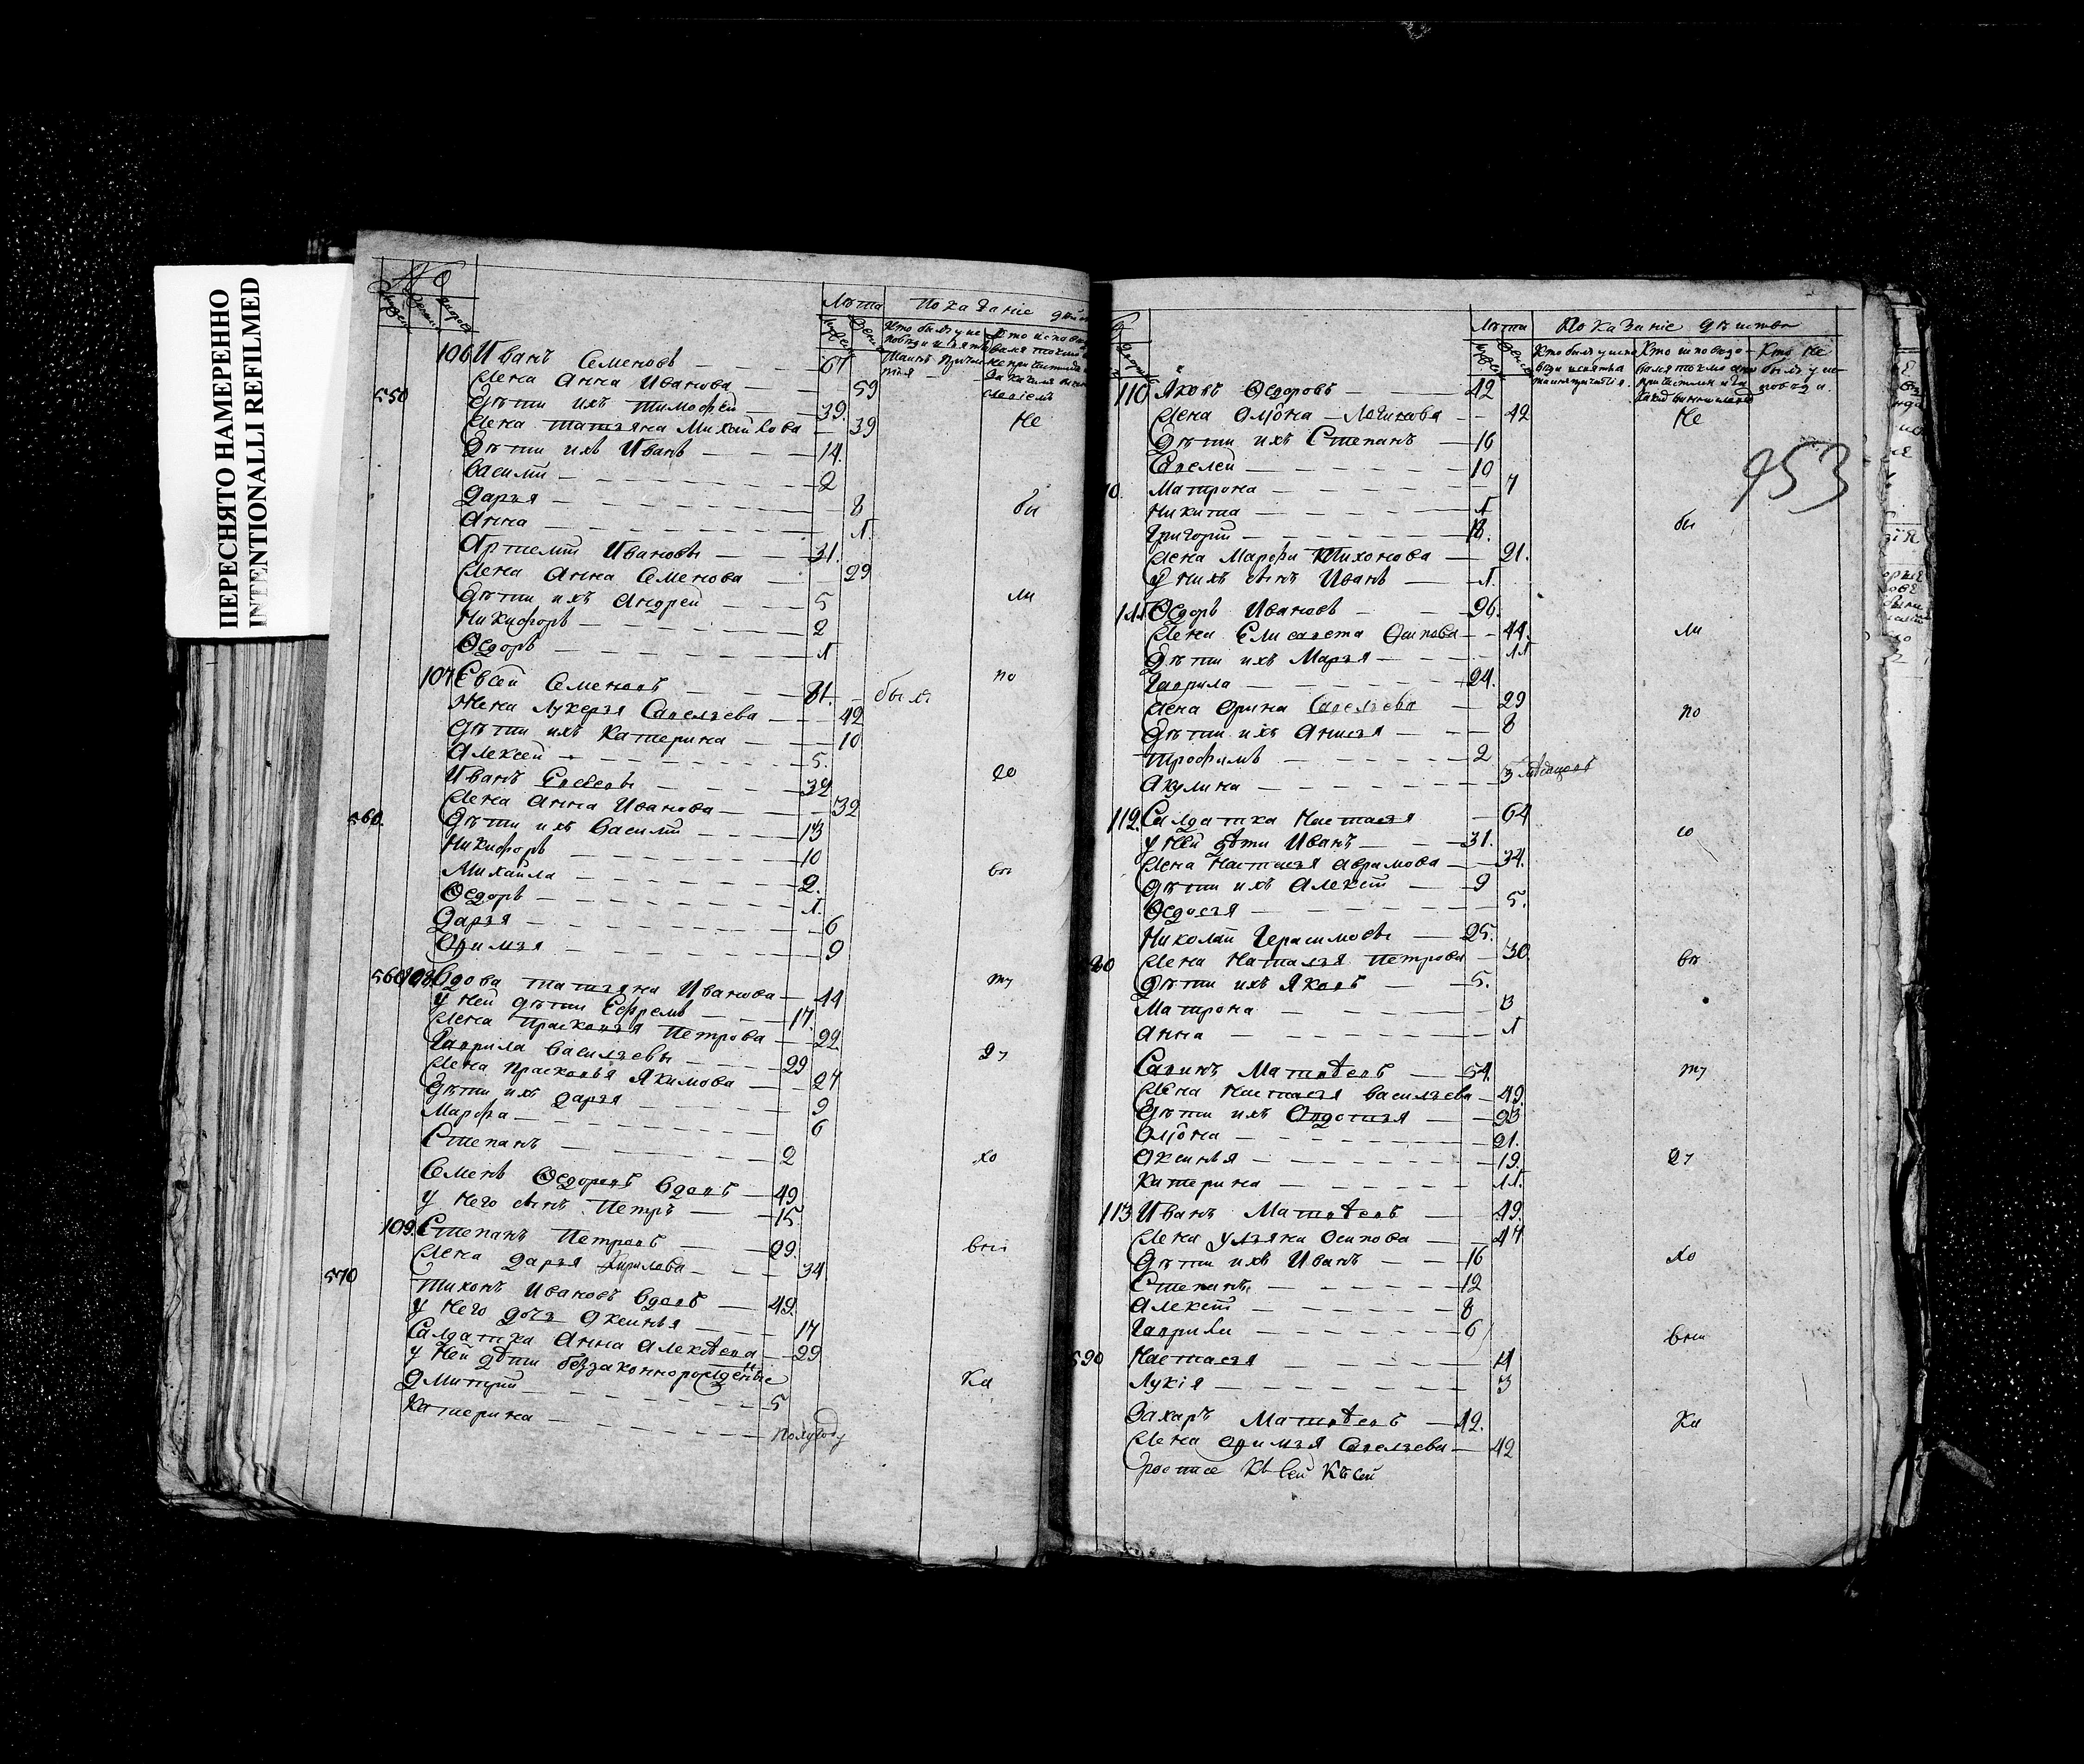 ПЕРЕСНЯТО НАМЕРЕННО
INTENTIONALLI REFILMED
№
Лѣта Показаніе
106 Иванъ Семеновъ 67
Жена Анна Иванова 59
550 Дѣти ихъ Тимофей 39.
Жена Татьяна Михайлова 39 не
Дѣти ихъ Иванъ 14.
Василий 2
Дарья 8 бы
Анна 1.
Артемий Ивановъ 31.
Жена Анна Семенова 29
Дѣти ихъ Андрей 5 ли
Никифоръ 2
Ѳедоръ 1
107 Евсей Семеновъ 81. были по
Жена Лукерья Савельева 42
Дѣти ихъ Катерина 10
Алексей 5.
Иванъ Евсеевъ 32
Жена Анна Иванова 32
560. Дѣти ихъ Василий 13
Никифоръ 10
Михайла 2.
Ѳедоръ 1.
Дарья 6
Офимья 9
560 108 Вдова Татьяна Иванова 44
У ней дѣти Ефремъ 17.
Жена Прасковья Петрова 22
Гаврила Васильевъ 29
Жена Прасковья Якимова 27
Дѣти ихъ Дарья 9
Марфа 6
Степанъ 2 хо
Семенъ Ѳедоровъ вдовъ 49
У него сынъ Петръ 15
109. Степанъ Петровъ 29.
Жена Дарья Кирилова 34
570 Тихонъ Ивановъ вдовъ 49.
У него дочь Оксинья 17
Салдатка Анна Алексѣева 29
У ней дѣти беззаконнорожденные
Дмитрий 5 ка
Катерина полугоду
Лѣта Показаніе дѣйства
110 Яковъ Ѳедоровъ 42
Жена Олона Логинова 42 не
Дѣти ихъ Степанъ 16
Савелей 10
Матрона 7
Никита 1
Григорий 18. бы
Жена Марфа Тихонова 21.
У нихъ сынъ Иванъ 1.
111 Ѳедоръ Ивановъ 96.
Жена Елисавета Осипова 44. ли
Дѣти ихъ Марья 11
Гаврила 24.
Жена Орина Савельева 29 по
Дѣти ихъ Анисья 8
Трофимъ 2
Акулина 3
112. Салдатка Настасья 64
У ней дѣти Иванъ 31. со
Жена Настасья Аврамова 34.
Дѣти ихъ Алексей 9
Ѳедосья 5.
Николай Герасимовъ 25.
Жена Наталья Петрова 30
Дѣти ихъ Яковъ 5.
Матрона 3
Анна 1
Савинъ Матвѣевъ 54
Жена Настасья Васильева 49.
Дѣти ихъ Овдотья 23
Олона 21.
Оксинья 19.
Катерина 11.
113 Иванъ Матвѣевъ 49.
Жена Ульяна Осипова 47
Дѣти ихъ Иванъ 16 хо
Степанъ 12
Алексей 8
Гаврила 6
590 Настасья 4
Лукія 3
Захаръ Матвѣевъ 42. ка
Жена Офимья Савельева 42
953